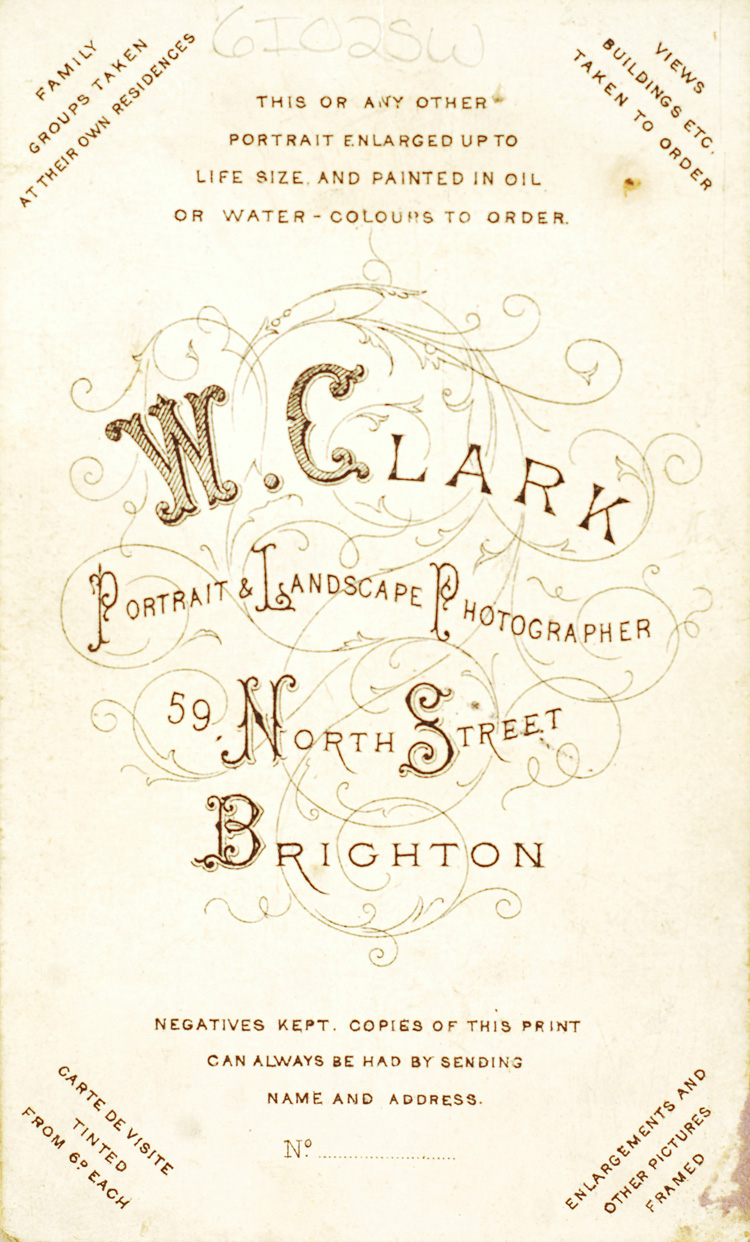 6I02SW
FAMILY
GROUPS TAKEN
AT THEIR OWN RESIDENCES
VIEWS
BUILDINGS ETC.
TAKEN TO ORDER
THIS OR ANY OTHER
PORTRAIT ENLARGED UP TO
LIFE SIZE, AND PAINTED IN OIL
OR WATER-COLOURS TO ORDER.
W. CLARK
PORTRAIT & LANDSCAPE PHOTOGRAPHER
59, NORTH STREET
BRIGHTON
NEGATIVES KEPT. COPIES OF THIS PRINT
CAN ALWAYS BE HAD BY SENDING
NAME AND ADDRESS.
Nº
CARTE DE VISITE
TINTED
FROM 6D EACH
ENLARGEMENTS AND
OTHER PICTURES
FRAMED